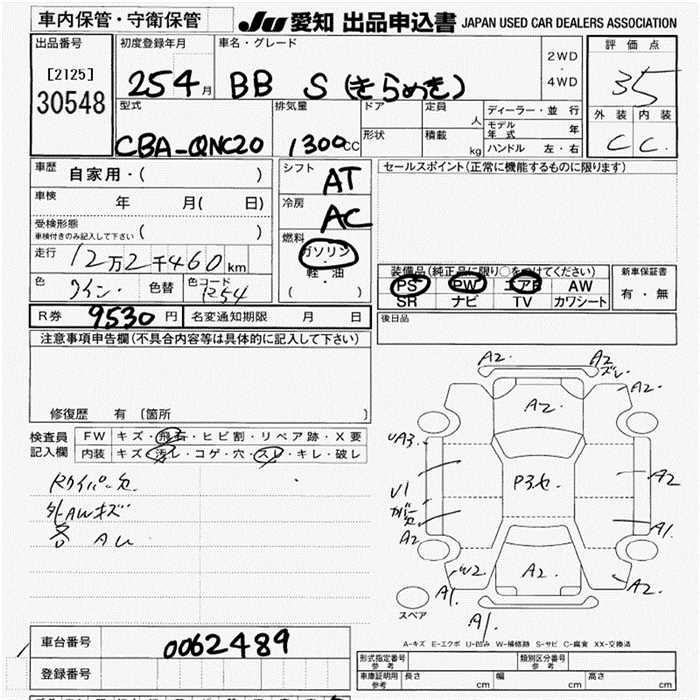 車内保管・守衛保管
JU 愛知 出品申込書 JAPAN USED CAR DEALERS ASSOCIATION
出品番号
[2125]
30548
初度登録年月
25 4 月
車名・グレード
BB S (きらめき)
2WD
・
4WD
評価点
3.5
外装 内装
C C
型式
CBA-QNC20
排気量
1300 CC
ドア
形状
定員 人
積載 kg
ディーラー・並行
モデル年式 年
ハンドル 左・右
車歴
自家用・( )
車検 年 月( 日)
受検形態
車検付きのみ記入して下さい ( )
走行 12万2千460 km
色 ワイン 色替 色コード R54
シフト AT
冷房 AC
燃料
ガソリン
・
軽・油
( )
セールスポイント(正常に機能するものに限ります)
装備品(純正品に限り○をつけてください)
PS PW エアB AW
SR ナビ TV カワシート
新車保証書
有・無
R券 9530 円 名変通知期限 月 日
後日品
注意事項申告欄(不具合内容等は具体的に記入して下さい)
修復歴 有 〔箇所 〕
検査員記入欄
FW キズ・飛石・ヒビ割・リペア跡・X要
内装 キズ・汚レ・コゲ・穴・スレ・キレ・破レ
Rワイパー欠
外AWキズ
各 AU
A2.
A2
ズレ
A2.
A2.
UA3.
P3セ
U1
カバー欠
A2
A2
A1.
W2
A2.
A2.
A1.
A1.
スペア
A-キズ E-エクボ U-凹み W-補修跡 S-サビ C-腐食 XX-交換済
車台番号 0062489
登録番号
形式指定番号 参考
類別区分番号 参考
車庫証明用 参考 長さ cm 幅 cm 高さ cm